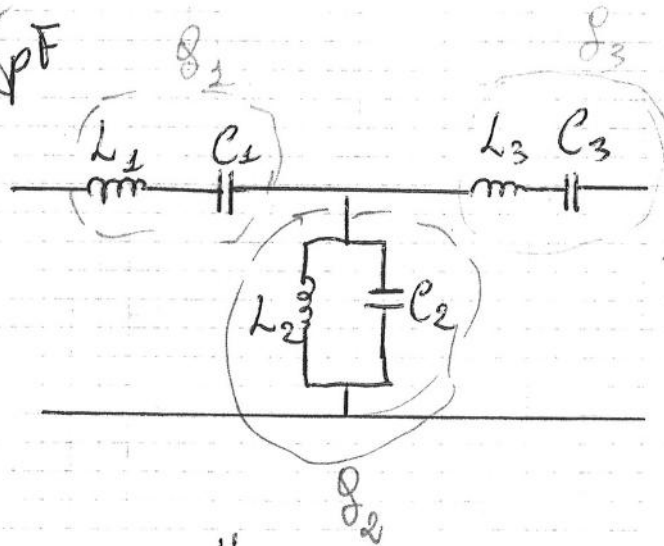 pF
g₁
g₃
L₁ C₁ L₃ C₃
L₂ C₂
g₂